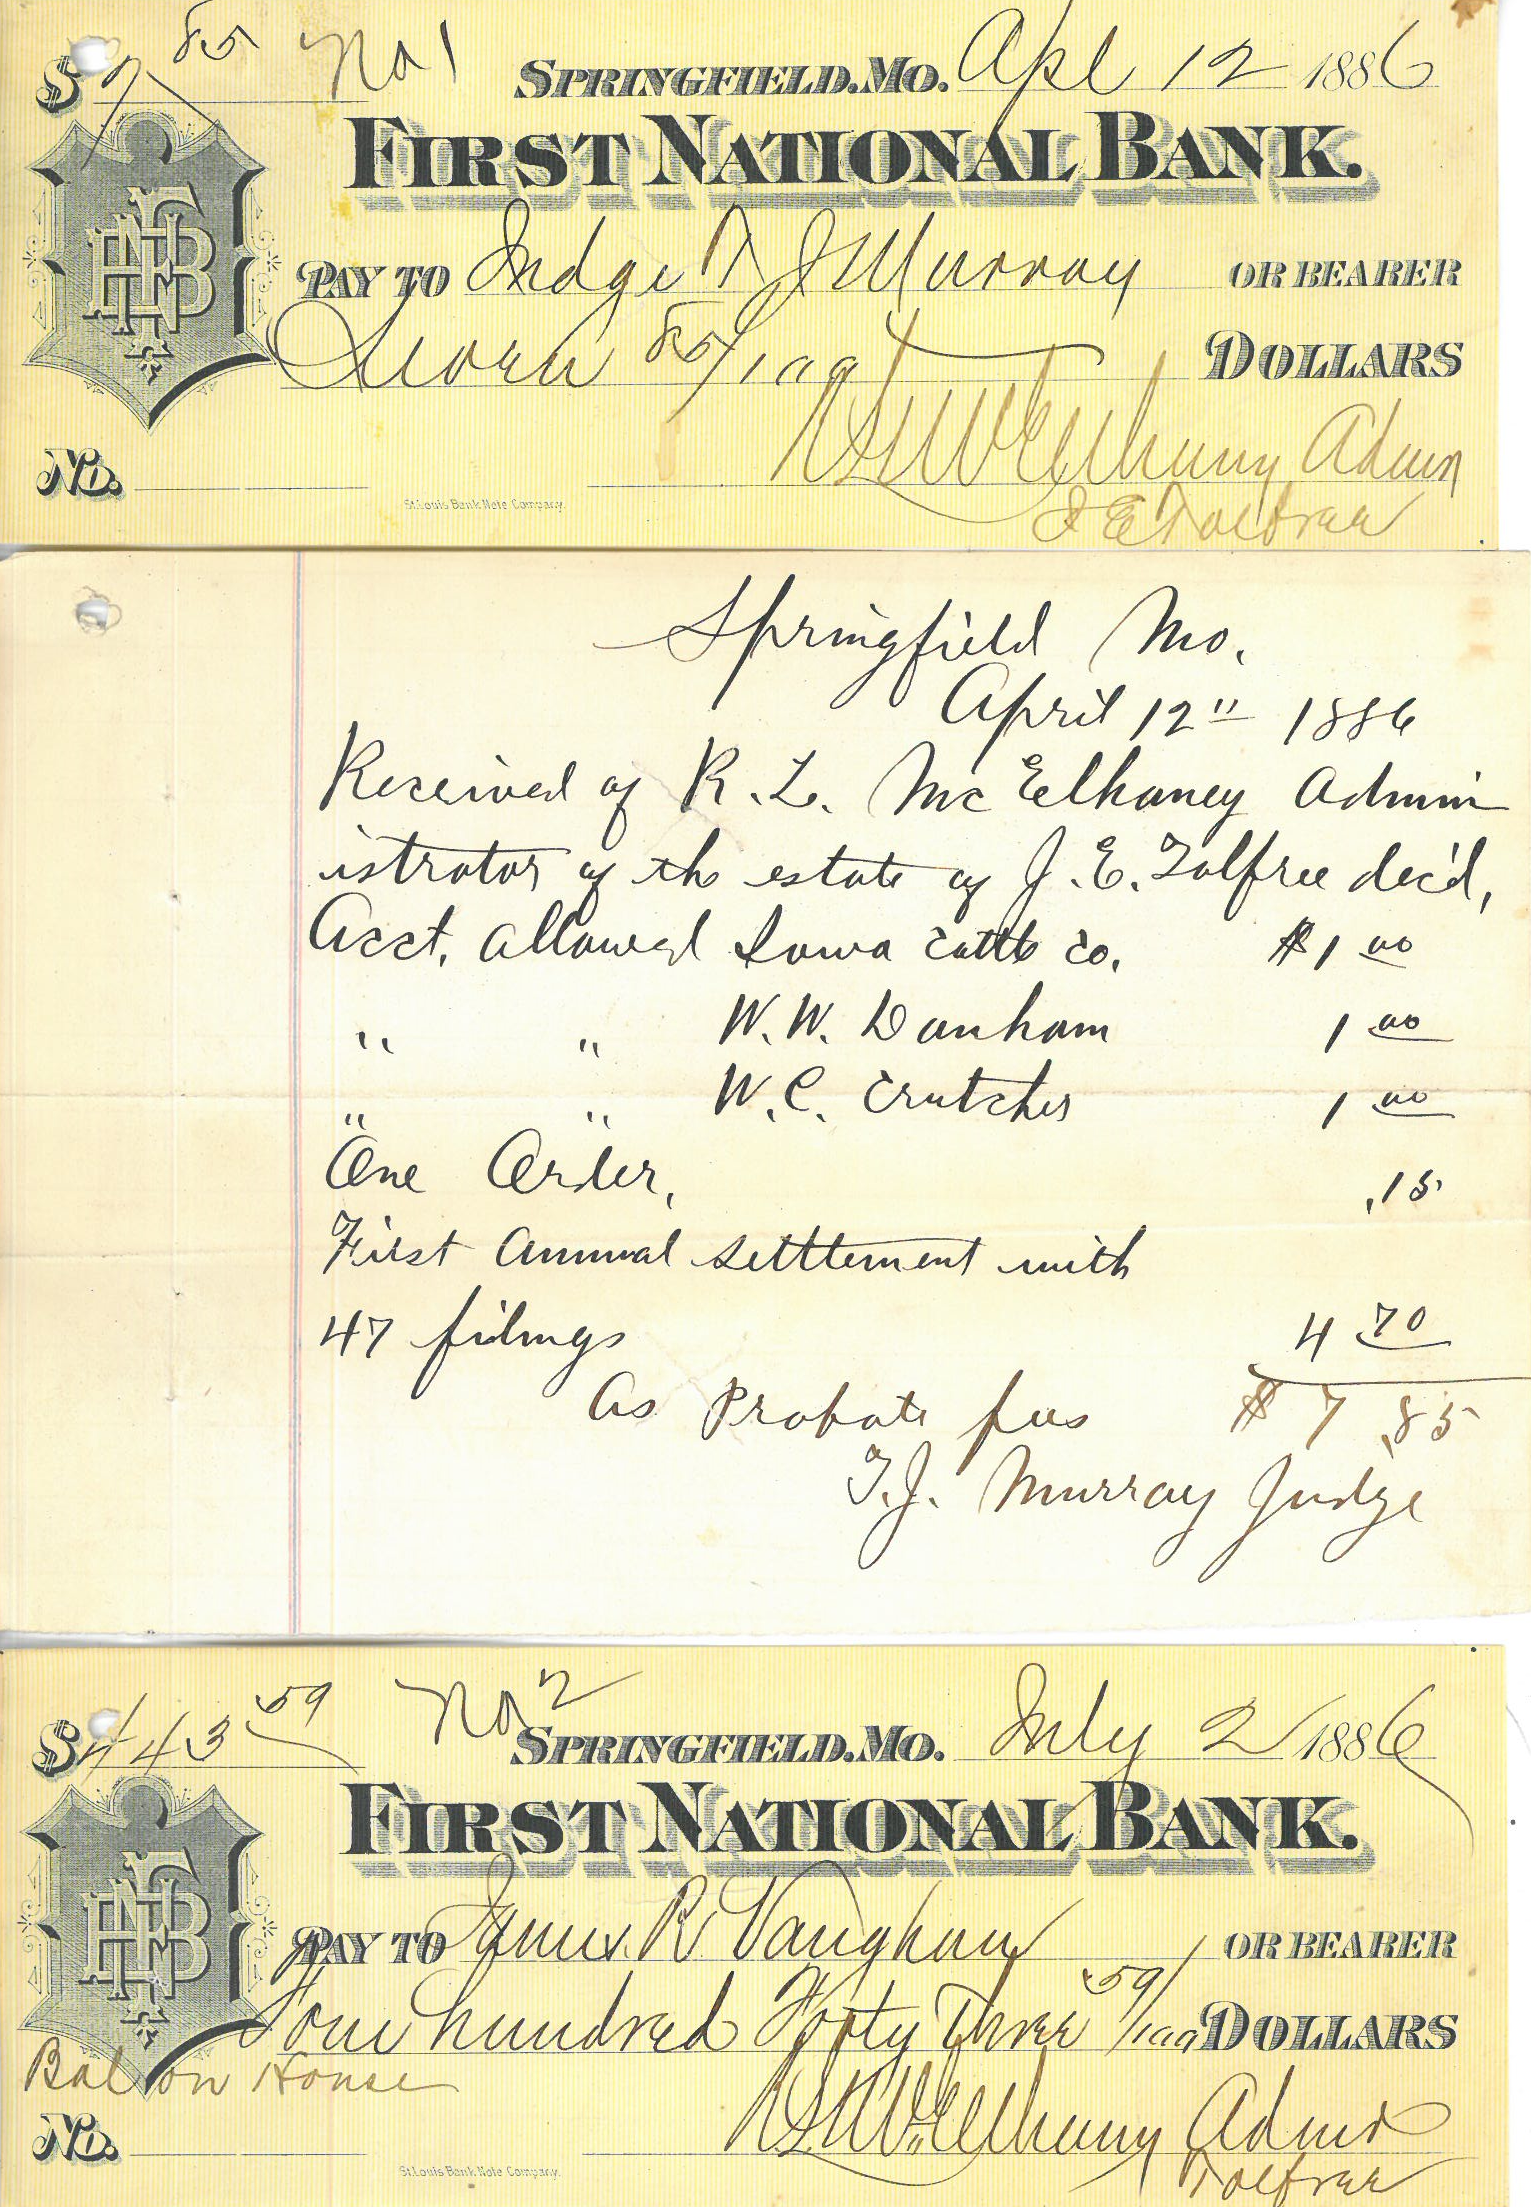 $7 85 No 1 SPRINGFIELD. MO. Apl 12 1886
FIRST NATIONAL BANK.
FNB
PAY TO Judge T J Murray OR BEARER
Seven 85/100 DOLLARS
R L McElhany Admr
No.
St. Louis Bank Note Company.
J E Tolfree
Springfield Mo.
April 12" 1886
Received of R. L. McElhaney Admin
istrator of the estate of J. E. Tolfree dec'd,
Acct. allowed Iowa Cattle Co. $1 00
" " W. W. Danham 1 00
" " W. C. Crutcher 1 00
One Order, .15
First Annual settlement with
47 filings 4 70
As Probate fees $7.85
T. J. Murray Judge
$443 59 No 2 SPRINGFIELD. MO. July 2 1886
FIRST NATIONAL BANK.
FNB
PAY TO James R Vaughan OR BEARER
Four hundred Forty Three 59/100 DOLLARS
Bal on House
R L McElhany Admr
No.
St. Louis Bank Note Company.
Tolfree